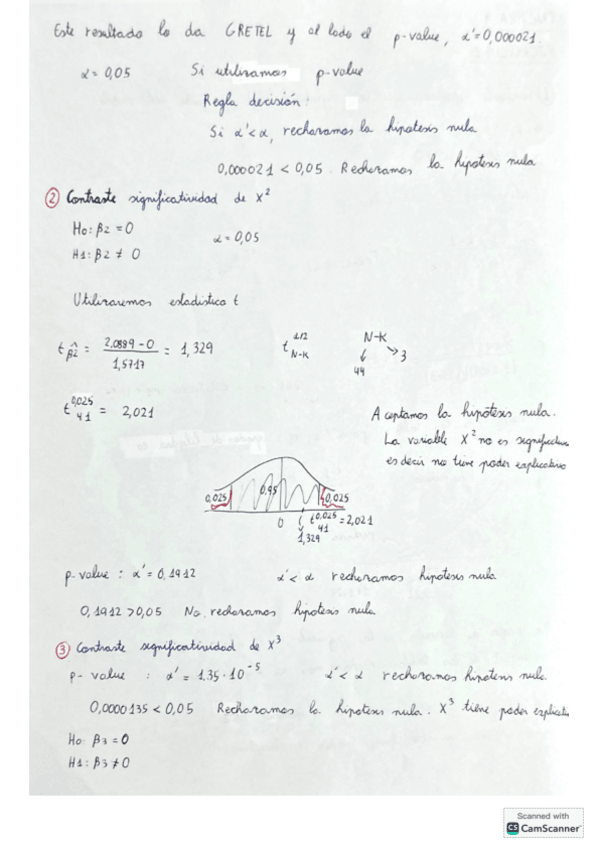 Este resultado lo da GRETEL y al lado el p-value, α'=0,000021.
α = 0,05 Si utilizamos p-value
Regla decisión:
Si α'<α, rechazamos la hipotesis nula
0,000021 < 0,05. Rechazamos la hipotesis nula
② Contraste significatividad de X²
H0: β2 = 0
α = 0,05
H1: β2 ≠ 0
Utilizaremos estadística t
t β̂2 = (2,0889 - 0) / 1,5717 = 1,329 t α/2 N-K N-K
44 3
t 0,025 41 = 2,021
Aceptamos la hipótesis nula.
La variable X² no es significativa
es decir no tiene poder explicativo
0,025 0,95 0,025
0 t 0,025 41 = 2,021
1,329
p-value : α' = 0,1912 α'< α rechazamos hipotesis nula
0,1912 > 0,05 No rechazamos hipotesis nula
③ Contraste significatividad de X³
p- value : α' = 1,35 · 10⁻⁵ α'< α rechazamos hipotesis nula
0,0000135 < 0,05 Rechazamos la hipotesis nula. X³ tiene poder explicati
H0: β3 = 0
H1: β3 ≠ 0
Scanned with
CS CamScanner